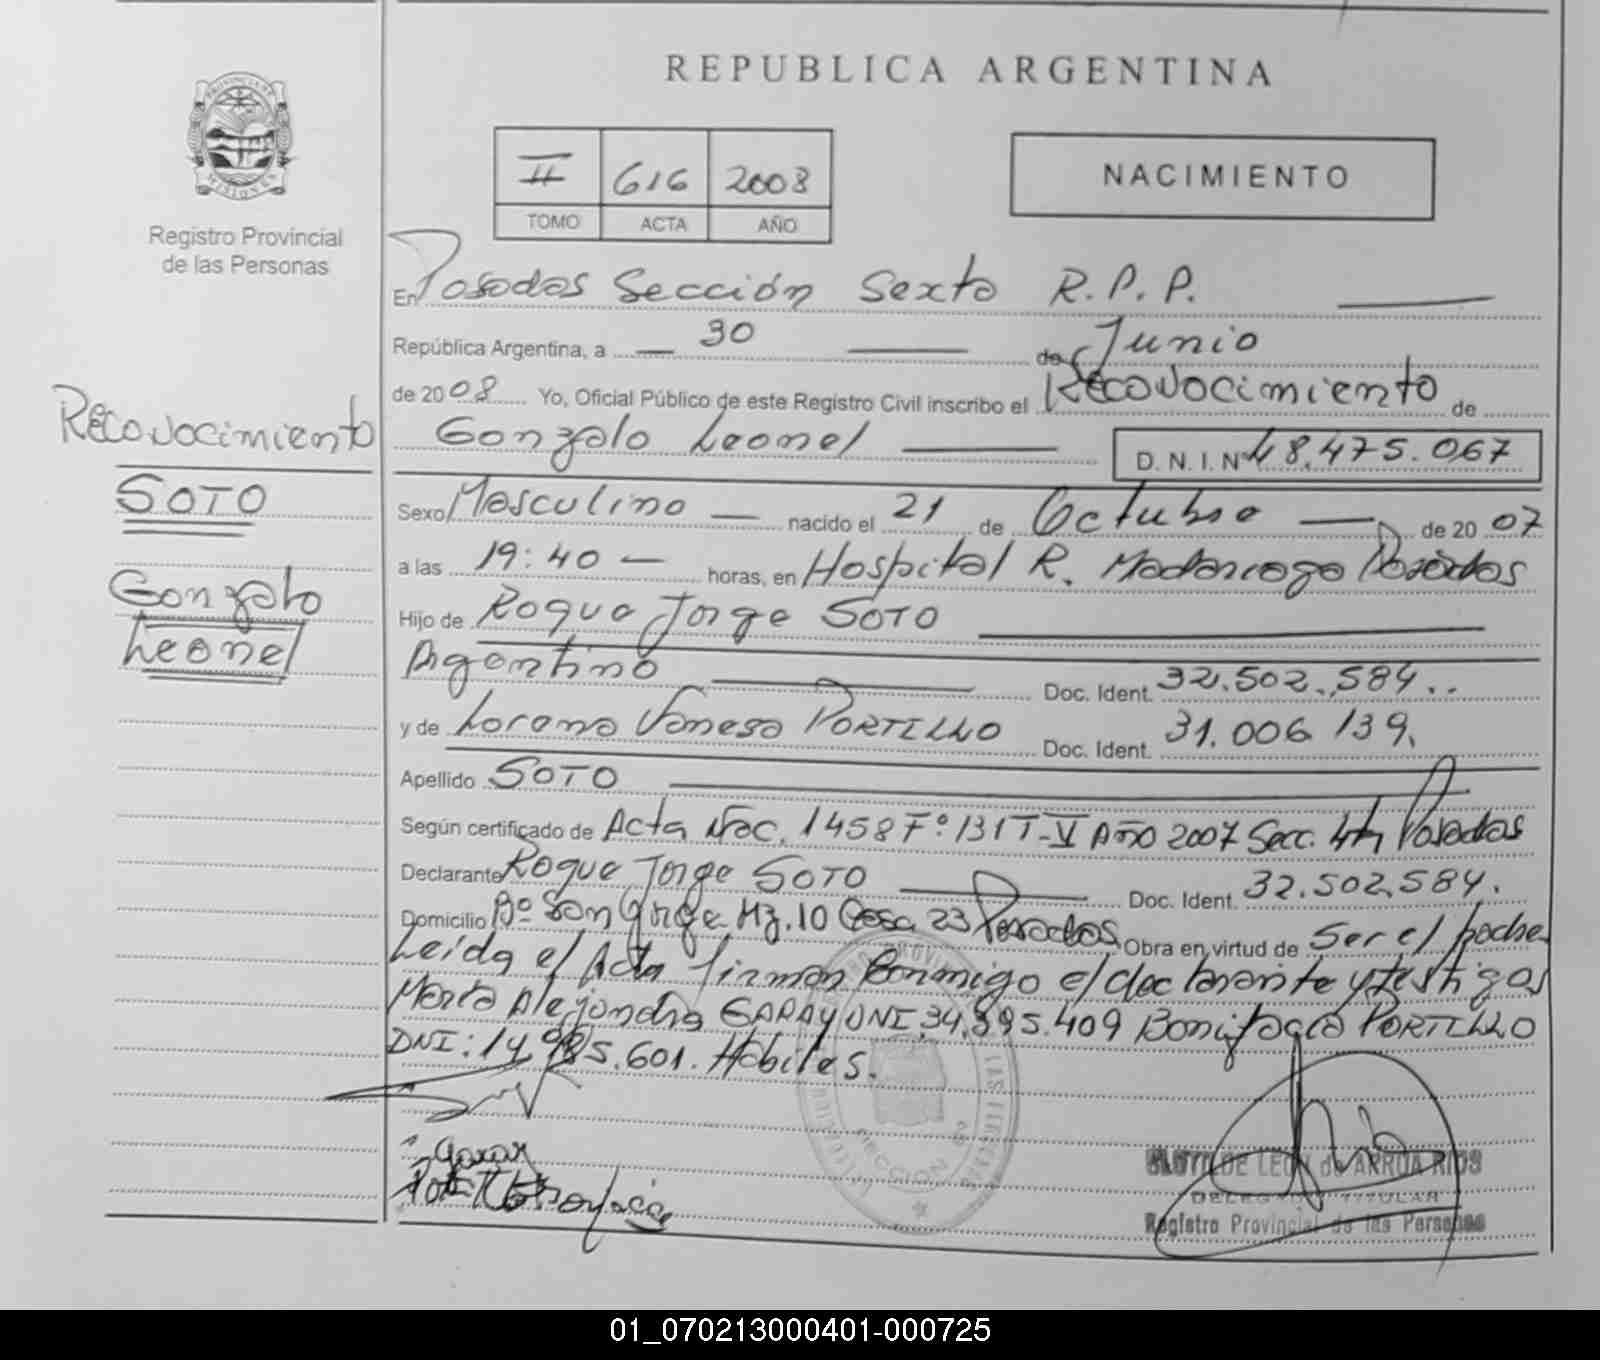 REPUBLICA ARGENTINA
PROVINCIA DE
MISIONES
Registro Provincial
de las Personas
II 616 2008
TOMO ACTA AÑO
NACIMIENTO
En Posadas Sección Sexta R.P.P.
República Argentina, a 30 de Junio
de 2008 Yo, Oficial Público de este Registro Civil inscribo el Reconocimiento de
Gonzalo Leonel D.N.I. Nº 48.475.067
Reconocimiento
SOTO
Gonzalo
Leonel
Sexo Masculino nacido el 21 de Octubre de 2007
a las 19:40 horas, en Hospital R. Madariaga Posadas
Hijo de Roque Jorge SOTO
Argentino Doc. Ident. 32.502.584..
y de Lorena Vanesa PORTILLO Doc. Ident. 31.006 139.
Apellido SOTO
Según certificado de Acta Nac. 1458 Fº 131 T-V AÑO 2007 Secc. 4ta Posadas
Declarante Roque Jorge SOTO Doc. Ident. 32.502.584.
Domicilio Bº San Jorge Mz. 10 Casa 23 Posadas Obra en virtud de Ser el padre
Leída el Acta firman conmigo el declarante y testigos
María Alejandra GARAY DNI 34.895.409 Bonifacio PORTILLO
DNI: 14.985.601. Hábiles.
Garay
CLOTILDE LEON de ARRUA RIOS
DELEGADO TITULAR
Registro Provincial de las Personas
01_070213000401-000725